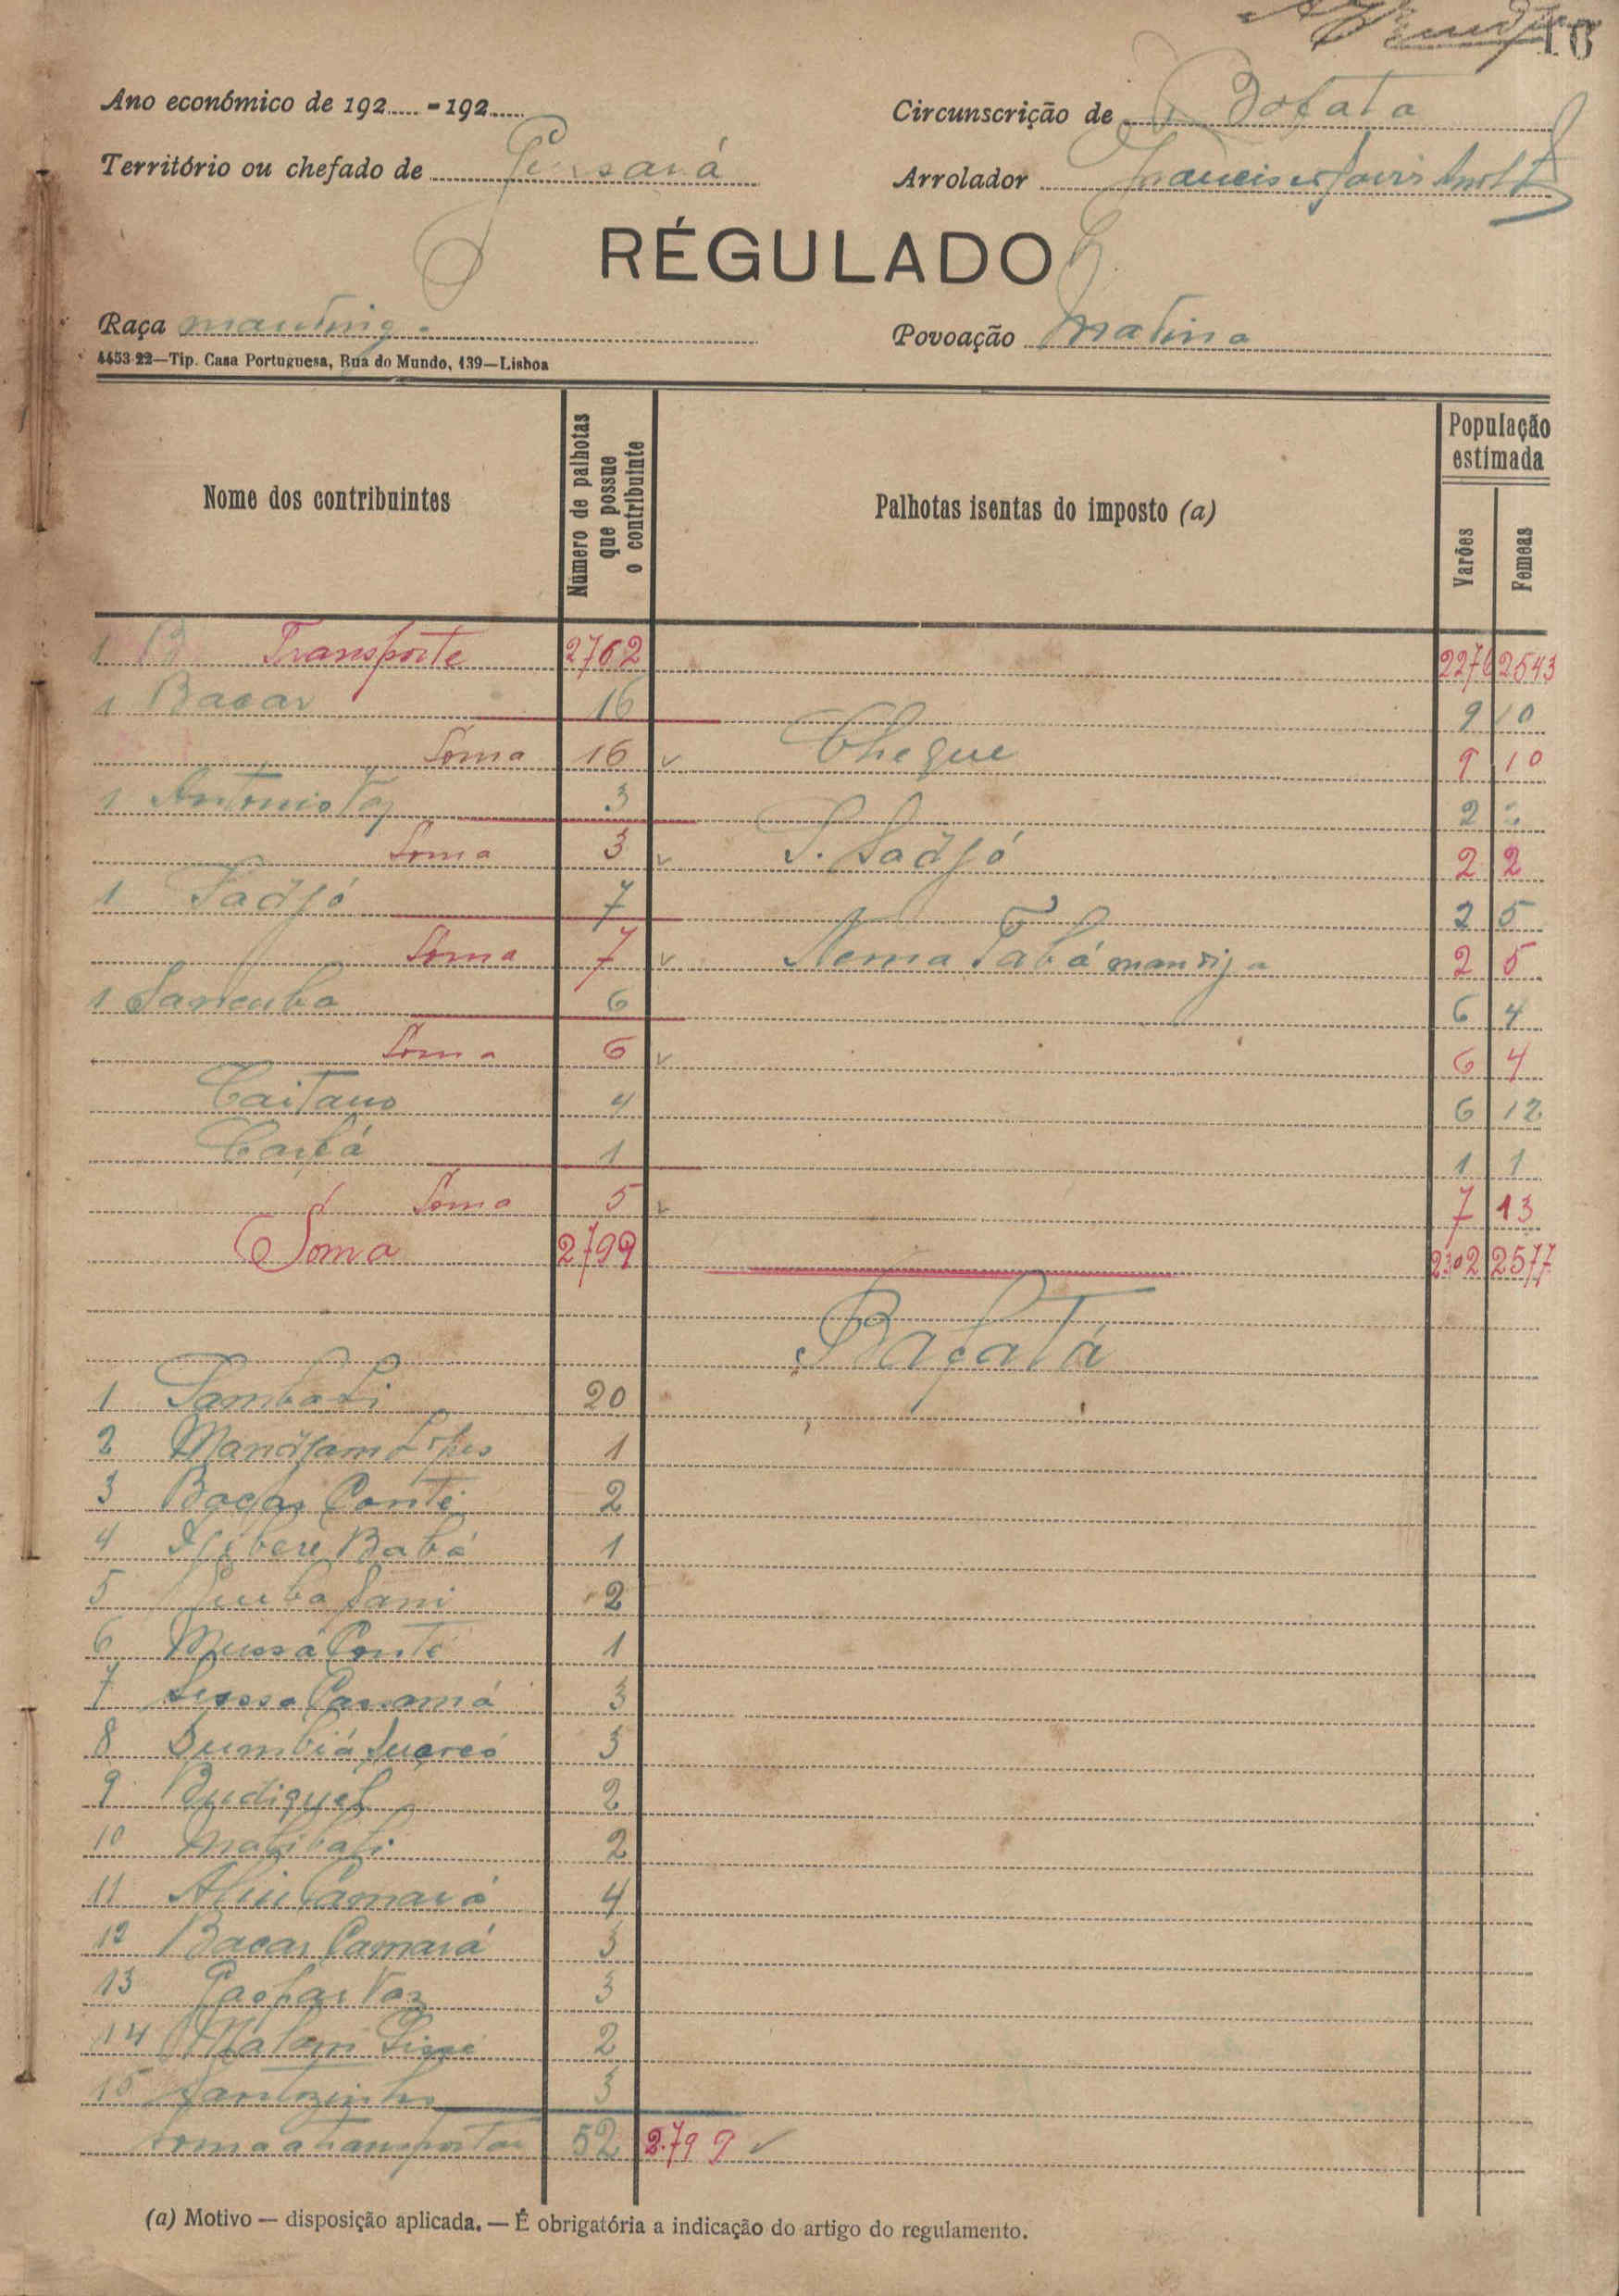 16
Ano económico de 192..... - 192.....
Circunscrição de Bafata
Território ou chefado de
Arrolador Francisco
RÉGULADO
Raça manding.
Povoação Matina
4453-22—Tip. Casa Portuguesa, Rua do Mundo, 139—Lisboa
Nome dos contribuintes
Número de palhotas que possue o contribuinte
Palhotas isentas do imposto (a)
População estimada
Varões
Femeas
1 Transporte 2762 2276 2543
1 Bacar 16 9 10
Soma 16 Cheque 9 10
1 Antonio Vaz 3 2 2
Soma 3 S. Sadjó 2 2
1 Sadjó 7 2 5
Soma 7 Nema Tabá mandiga 2 5
1 Sancuba 6 6 4
Soma 6 6 4
Caitano 4 6 12
1 1 1
Soma 5 7 13
Soma 2799 2302 2577
Bafatá
1 20
2 1
3 Conté 2
4 Babá 1
5 Sani 2
6 Mussá Conté 1
7 Cassamá 3
8 3
9 2
10 2
11 Camará 4
12 Bacar Camará 3
13 Gaspar Vaz 3
14 2
15 3
Soma a transportar 52 2.799
(a) Motivo — disposição aplicada. — É obrigatória a indicação do artigo do regulamento.